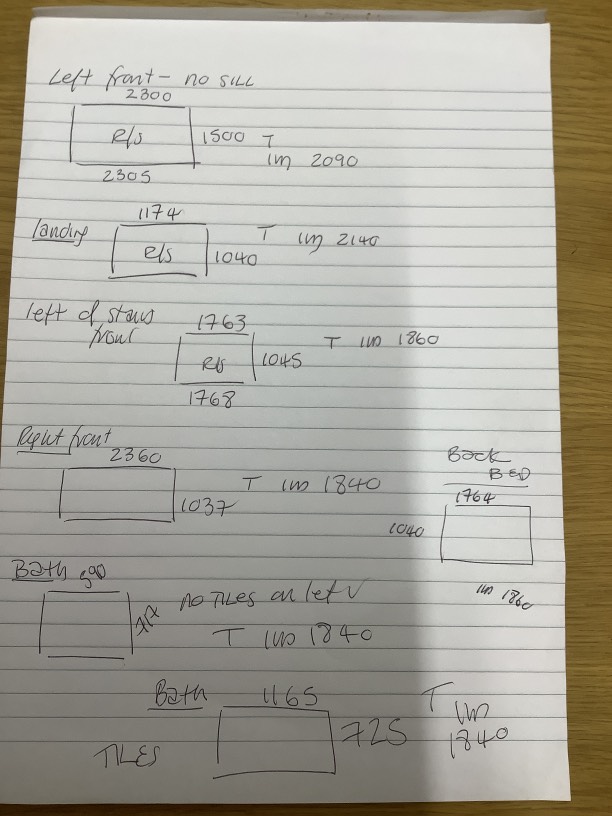 Left front - no SILL
2300
R/s 1500 T
1m 2090
2305
1174
landing R/s 1040 T 1m 2140
left of stairs
front
1763
R/s 1045 T 1m 1860
1768
Right front
2360
1037 T 1m 1840
Back
BED
1764
1040
1m 1860
Bath 590
717 no TILES on left ✓
T 1m 1840
Bath 1165 T
725 1m
1840
TILES